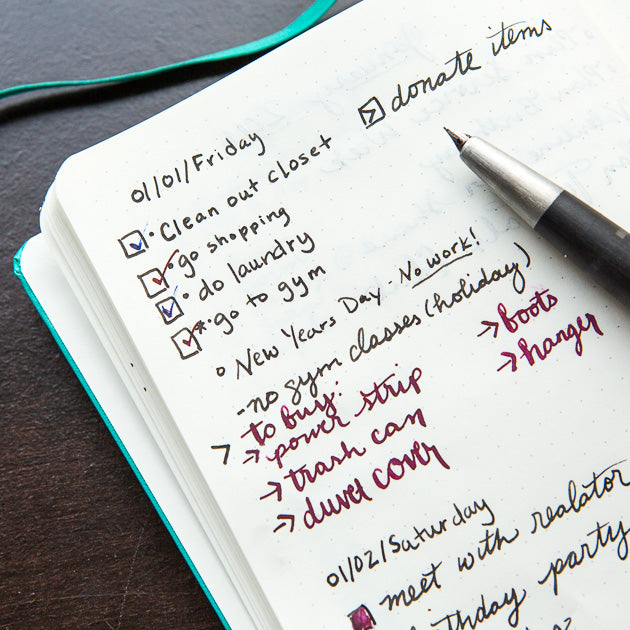 donate items
01/01/Friday
Clean out closet
go shopping
do laundry
*go to gym
New Years Day - No work!
-no gym classes (holiday)
to buy:
> → power strip
→ trash can
→ duvet cover
→ boots
→ hanger
01/02/Saturday
meet with realator
birthday party